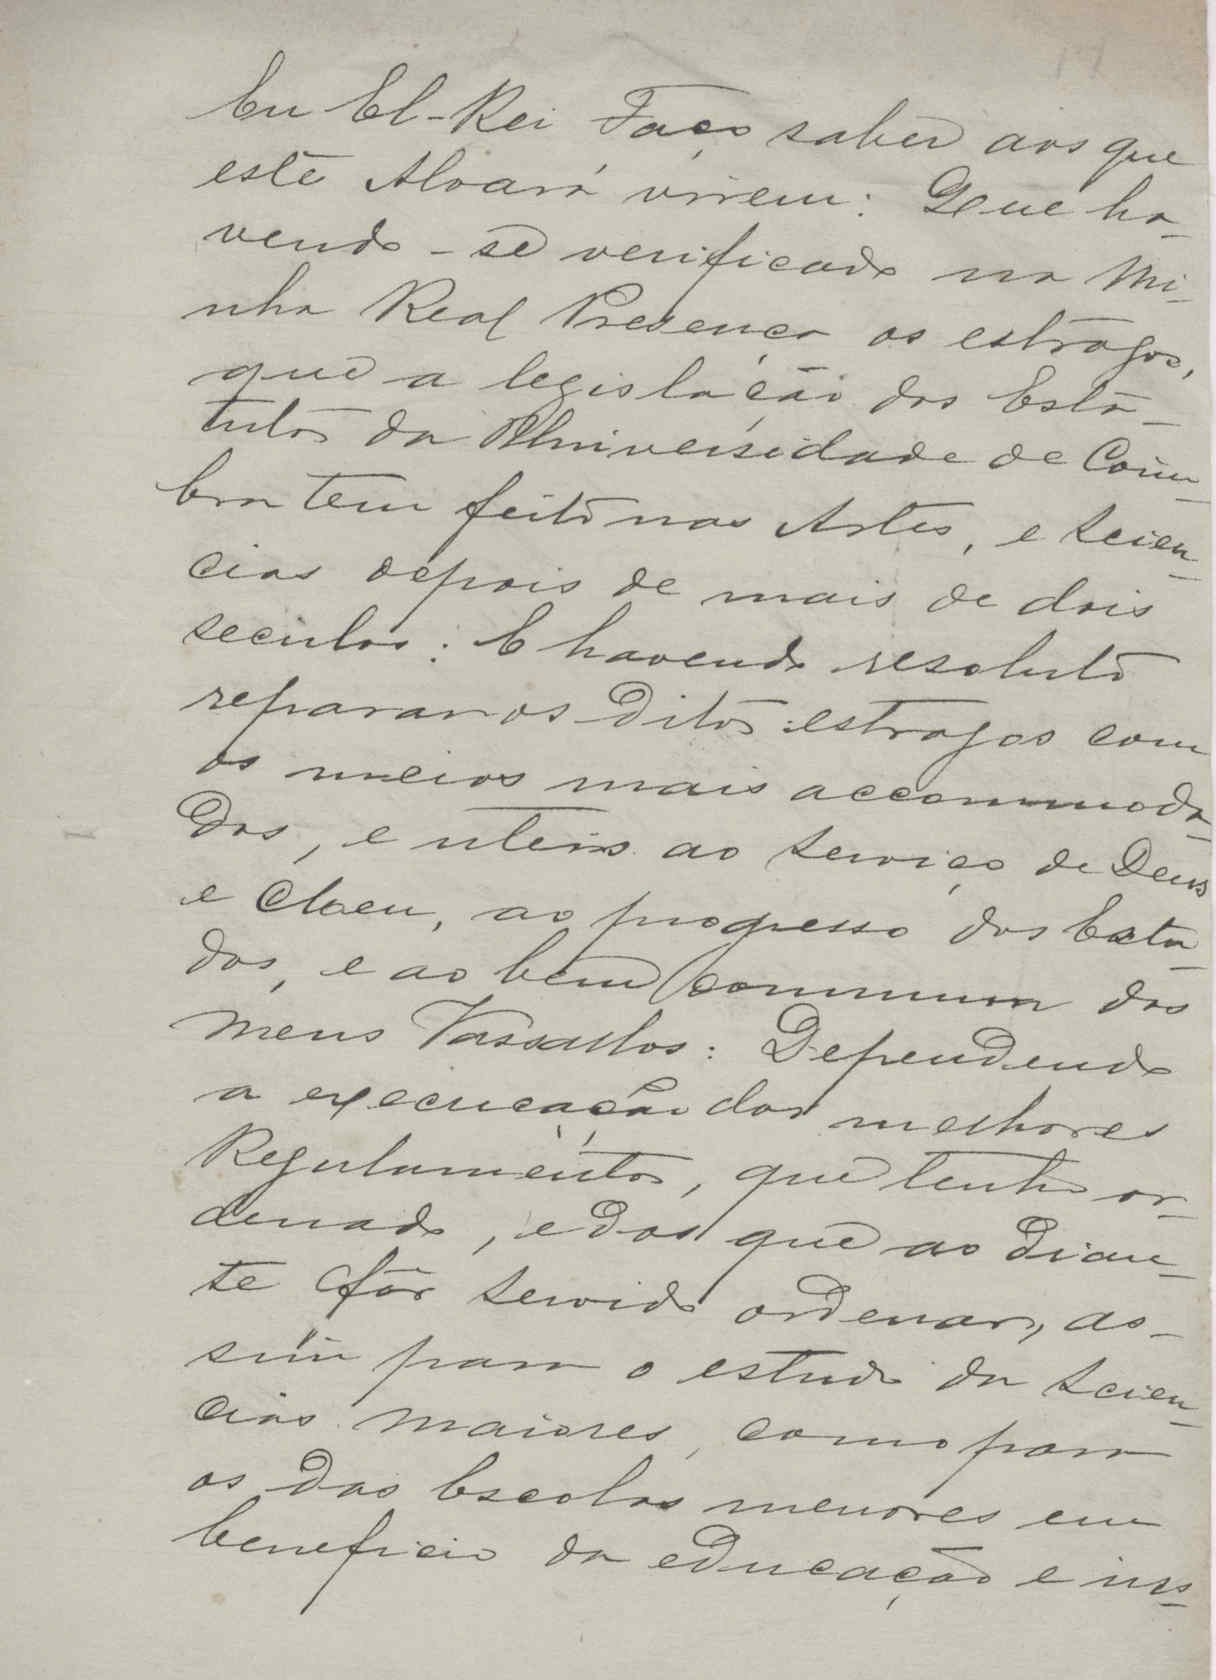 Eu El-Rei Faço saber aos que
este Alvará virem: Que ha-
vendo-se verificado na Mi-
nha Real Presença os estragos,
que a legislação dos Esta-
tutos da Universidade de Coim-
bra tem feito nas Artes, e Scien-
cias depois de mais de dois
seculos: E havendo resoluto
reparar os Ditos estragos com
os meios mais accommoda-
dos, e uteis ao serviço de Deus
e Meu, ao progresso dos Esta-
dos, e ao bem commum dos
meus Vassallos: Dependendo
a execucação dos melhores
Regulamentos, que tenho or-
denado, e dos que ao dian-
te fôr servido ordenar, as-
sim para o estudo da Scien-
cias maiores, como para
os das Escolas menores em
beneficio da educação e ins-